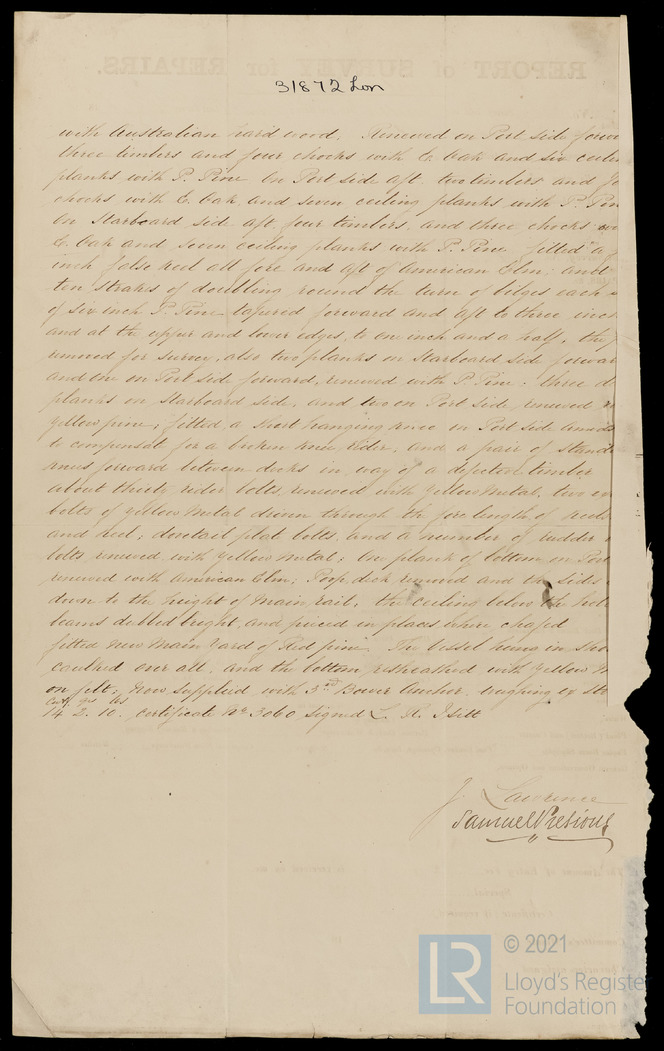 31872 Lon
with Australian hard wood. Renewed on Port side forw
three timbers and four chocks with E. Oak and six ceilin
planks with P. Pine On Port side aft. two timbers and fo
chocks with E. Oak, and seven ceiling planks with P. Pin
On Starboard side aft four timbers, and three chocks w
E. Oak and seven ceiling planks with P. Pine fitted a
inch false keel all fore and aft of American Elm; and
ten strakes of doubling round the turn of bilges each s
of six inch P. Pine tapered forward and aft to three inc
and at the upper and lower edges, to one inch and a half, the
removed for survey, also two planks on Starboard side forwar
and one on Port side forward, renewed with P. Pine; three d
planks on Starboard side, and two on Port side, renewed
yellow pine, fitted a short hanging knee on Port side
to compensate for a broken knee rider, and a pair of stand
knees forward between decks in way of a defective timber
about thirty rider bolts renewed with Yellow Metal, two
bolts of yellow Metal driven through the fore length of
and keel, dovetail plate bolts, and a number of rudder
bolts renewed with Yellow Metal; One plank of bottom on Port
renewed with American Elm; Poop deck removed and the sides
down to the height of Main rail, the ceiling below the hol
beams dubbed bright, and pieced in places where chafed
fitted New Main Yard of Red pine The Vessel hung in
caulked over all, and the bottom resheathed with Yellow M
on felt; Now supplied with 3rd Bower Anchor, weighing ex Sto
cwt qrs lbs
14. 2. 10. certificate No. 3060 signed L. R.
J. Lawrence
Samuel
REPORT of SURVEY for REPAIRS.
LR
© 2021
Lloyd's Register
Foundation